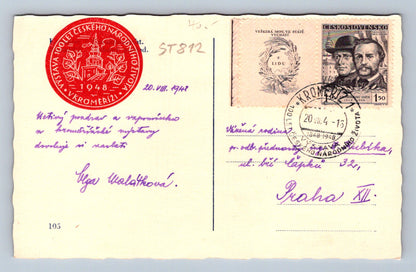 VÝSTAVA 100 LET ČESKÉHO NÁRODNÍHO ŽIVOTA
1948
V KROMĚŘÍŽI
40,-
ST 812
VEŠKERÁ MOC VE STÁTĚ
VYCHÁZÍ
Z
LIDU
ČESKOSLOVENSKO
1.50
KROMĚŘÍŽ 1
20.VIII.4 -16
1848-1948
VÝSTAVA
100 LET
NÁRODNÍHO ŽIVOTA
20. VIII. 1948
Uctivý pozdrav a vzpomínku
z kroměřížské výstavy
dovoluje si zaslati
Olga Malátková.
Vážená rodina
p. odb. přednosty
ul. bří Čapků 32,
Praha XII.
105